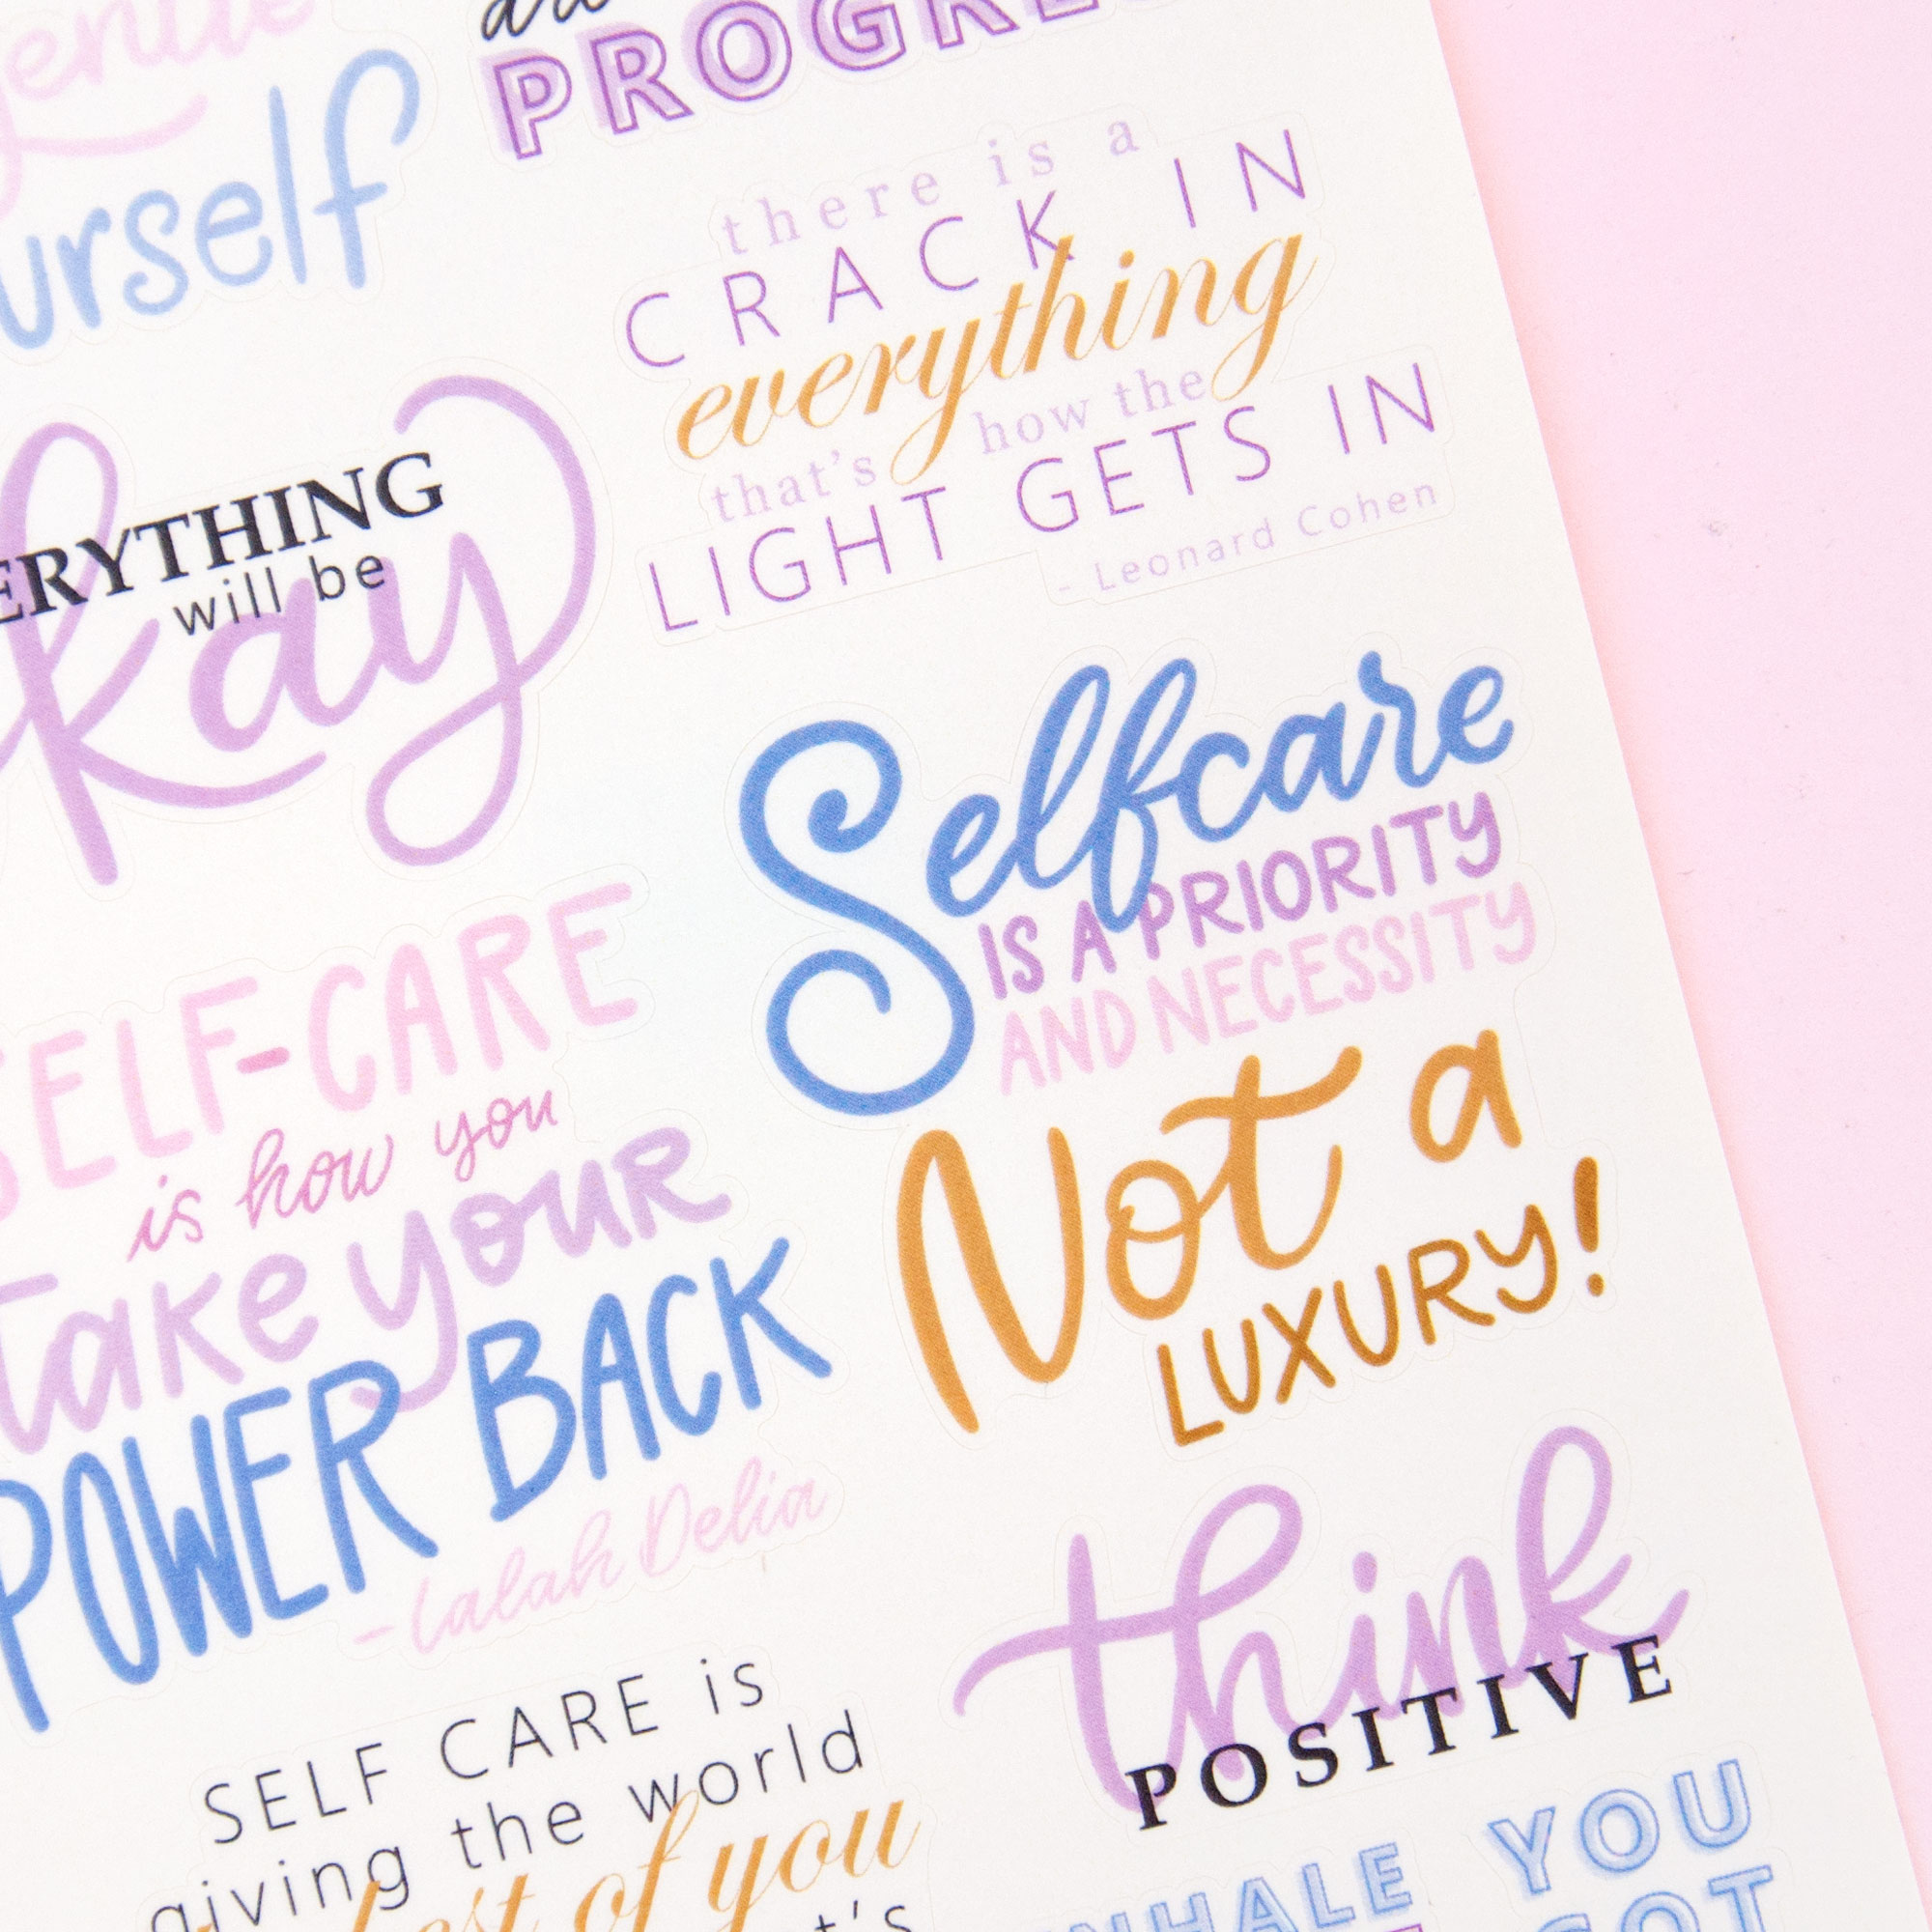 urself
PROGRE
there is a
CRACK IN
everything
that's how the
LIGHT GETS IN
- Leonard Cohen
ERYTHING
will be
kay
Selfcare
IS A PRIORITY
AND NECESSITY
Not a
LUXURY!
SELF-CARE
is how you
Take your
POWER BACK
- Lalah Delia
think
POSITIVE
SELF CARE is
giving the world
est of you
t's
NHALE
YOU
GOT